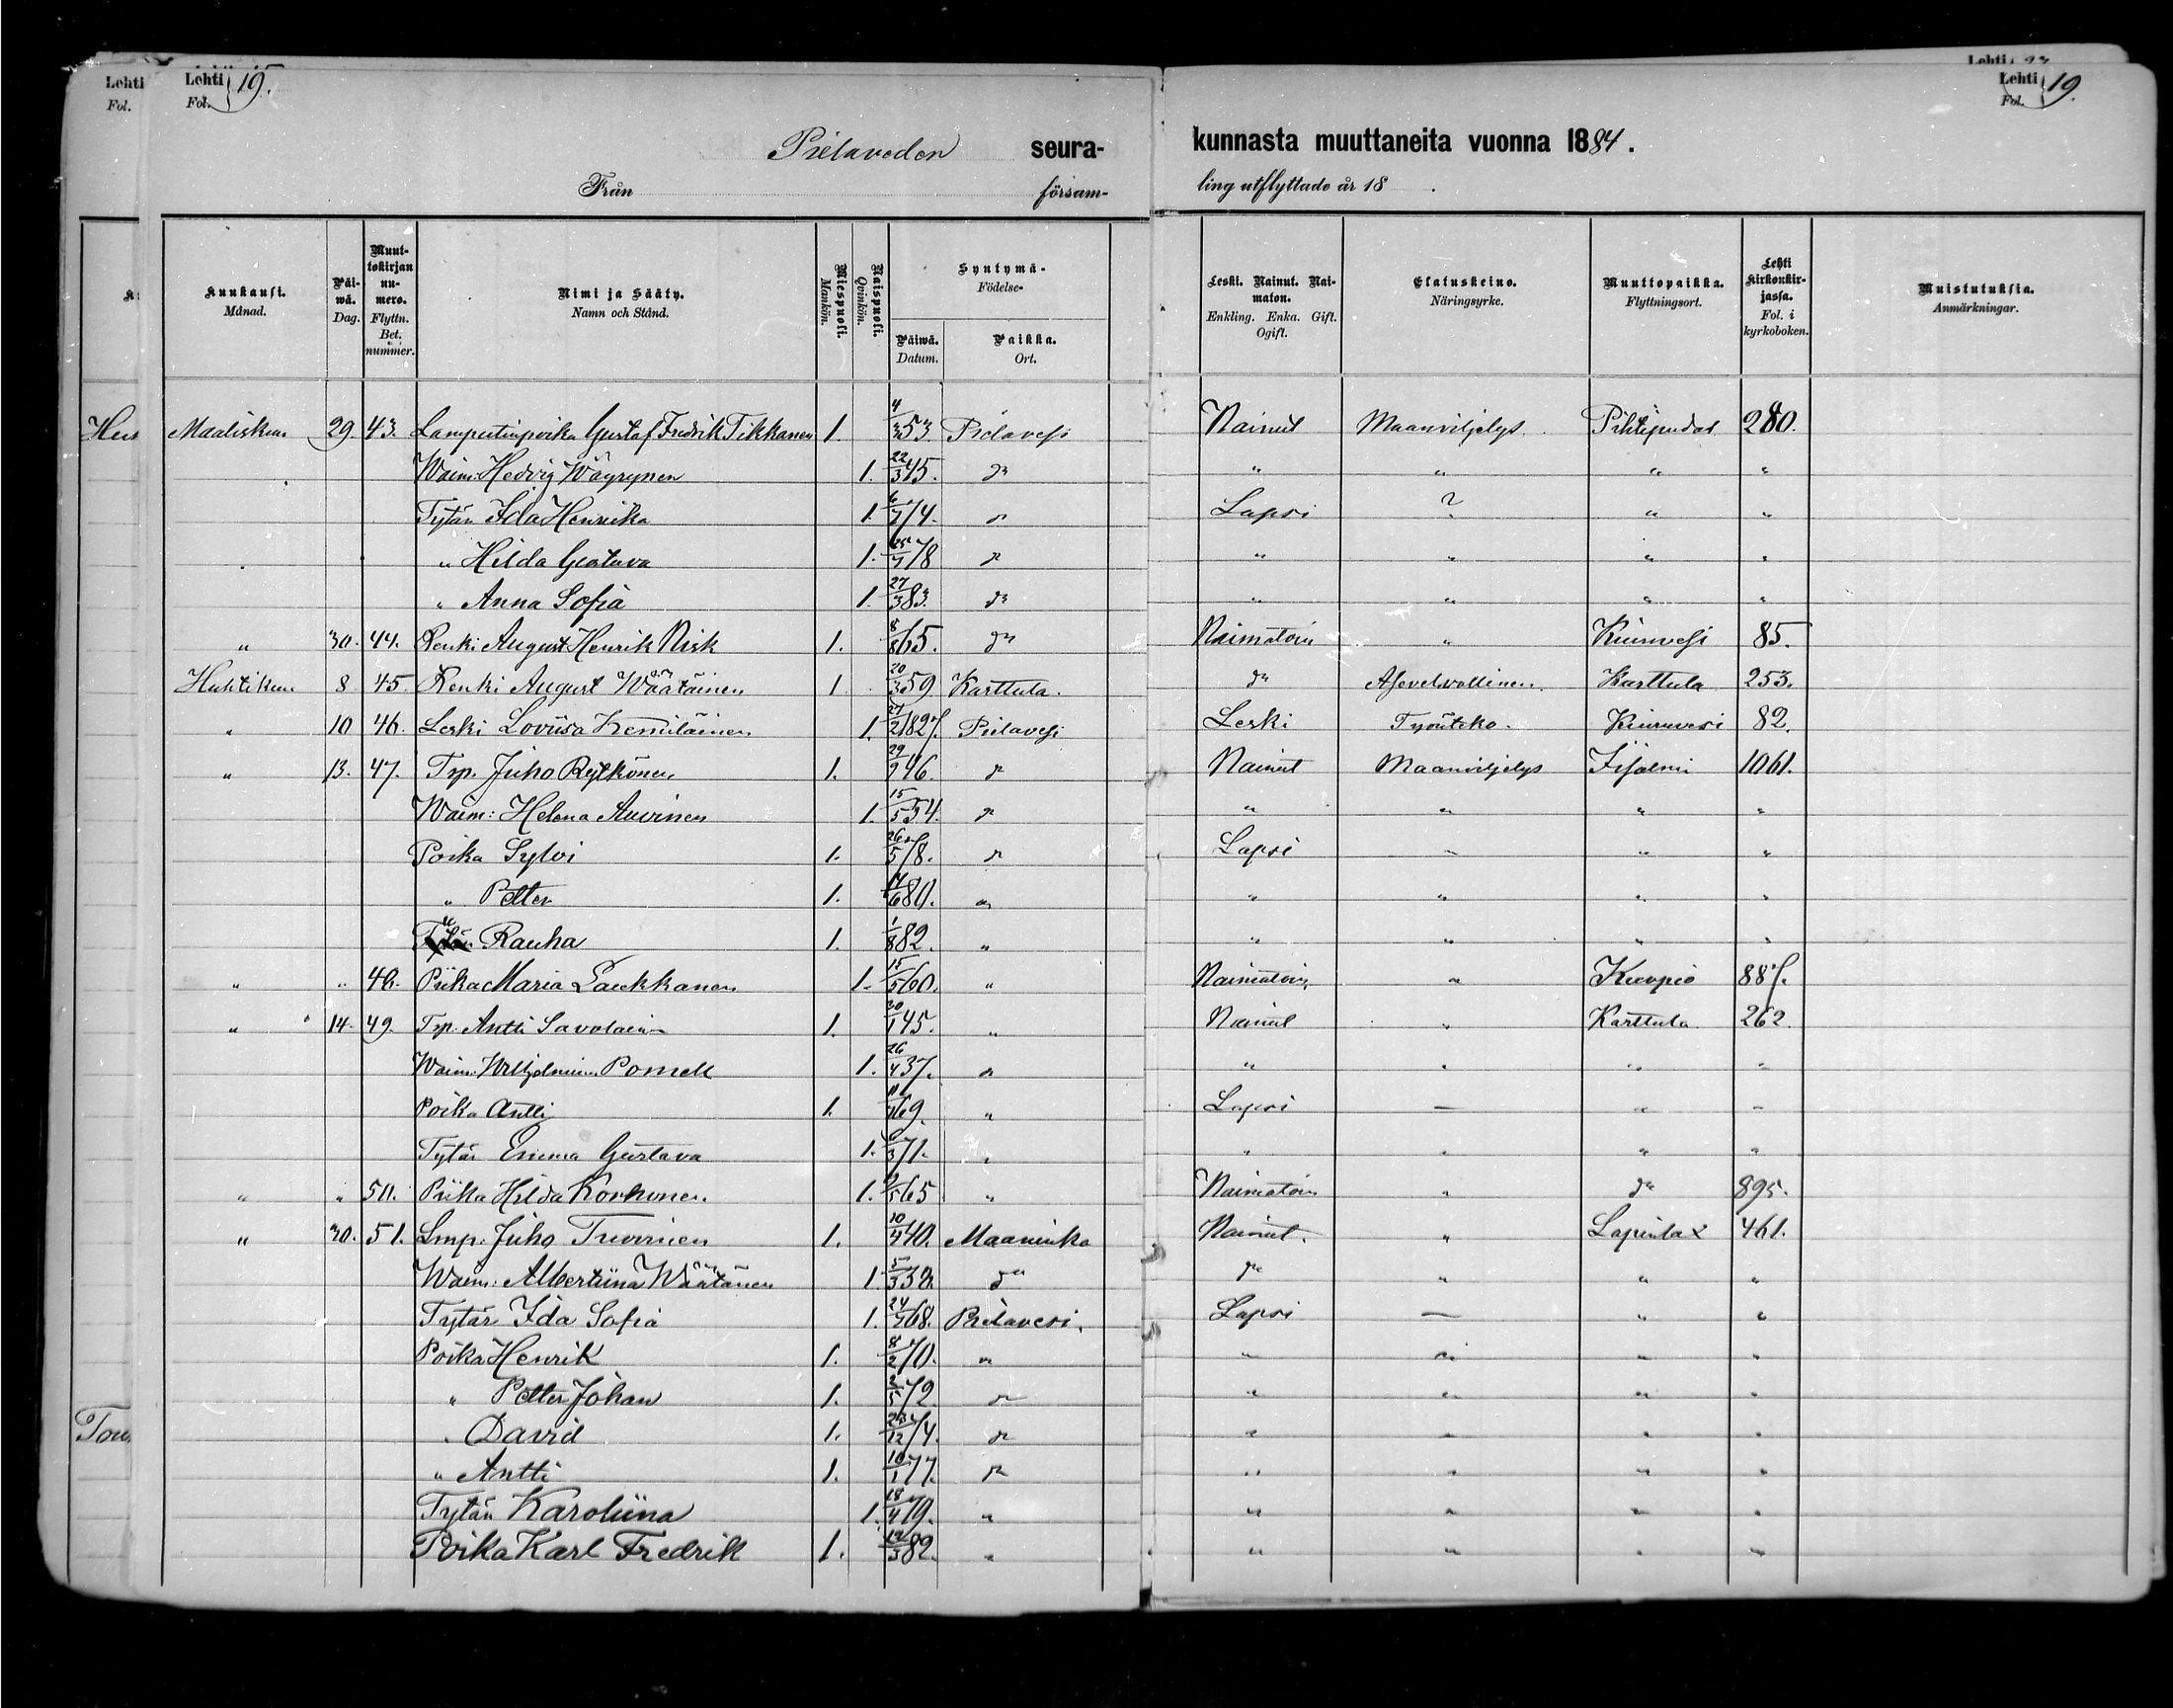 Lehti Fol. 19.
Lehti Fol. 19.
Pielaveden seura-kunnasta muuttaneita vuonna 1884.
Från försam-ling utflyttade år 18 .
Kuukausi. Månad.
Päiwä. Dag.
Muuttokirjan numero. Flyttn. Bet. nummer.
Nimi ja Sääty. Namn och Stånd.
Miespuoli. Mankön.
Naispuoli. Qvinkön.
Syntymä- Födelse-
Päiwä. Datum.
Paikka. Ort.
Leski. Nainut. Naimaton. Enkling. Enka. Gift. Ogift.
Elatuskeino. Näringsyrke.
Muuttopaikka. Flyttningsort.
Lehti kirkonkirjassa. Fol. i kyrkoboken.
Muistutuksia. Anmärkningar.
Maaliskuu 29. 43. Lampuotinpoika Gustaf Fredrik Tikkanen 1. 4/3 53 Pielavesi Nainut Maanviljelys Pihtipudas 280.
Waim: Hedvig Wäyrynen 1. 22/3 45. do " " " "
Tytär Ida Henrika 1. 6/7 74. do Lapsi ? " "
" Hilda Gustava 1. 25/7 78 do " " " "
" Anna Sofia 1. 27/3 83. do " " " "
" 30. 44. Renki August Henrik Risk 1. 8/8 65. do Naimatoin " Kiuruvesi 85.
Huhtikuu 8 45 Renki August Wäätäinen 1 20/3 59 Karttula. do Asevelvollinen. Karttula 253.
" 10 46. Leski Loviisa Kemiläinen 1. 27/2 1827. Pielavesi Leski Työnteko. Kiuruvesi 82.
" 13. 47. Trp. Juho Rytkönen 1. 29/9 46 do Nainut Maanviljelys Iisalmi 1061.
Waim: Helena Auvinen 1. 15/5 54. do " " " "
Poika Sylvi 1. 26/5 78. do Lapsi – " "
" Petter 1. 14/6 80. do " " " "
" Rauha 1. 1/8 82. " " " " "
" " 48. Piika Maria Laukkanen 1. 15/5 60. " Naimatoin " Kuopio 887.
" 14. 49. Trp. Antti Savolainen 1. 30/1 45. " Nainut " Karttula 262.
Waim: Wilhelmiina Pomell 1. 26/4 37. do " " " "
Poika Antti 1. 69. " Lapsi — " "
Tytär Emma Gustava 1. 71. " " " " "
" " 50. Piika Hilda Korhonen 1. 65 " Naimatoin " do 895.
" 30. 51. Lmp. Juho Tuovinen 1. 10/4 40. Maaninka Nainut. " Lapinlax 461.
Waim: Albertiina Wäätänen 1. 5/3 38. do do " " "
Tytär Ida Sofia 1. 24/7 68. Pielavesi. Lapsi — " "
Poika Henrik 1. 8/2 70. " " " " "
" Petter Johan 1. 2/5 72. do " " " "
" David 1. 23/12 74. do " " " "
" Antti 1. 10/1 77. do " " " "
Tytär Karoliina 1. 18/4 79. " " " " "
Poika Karl Fredrik 1. 82. " " " " "